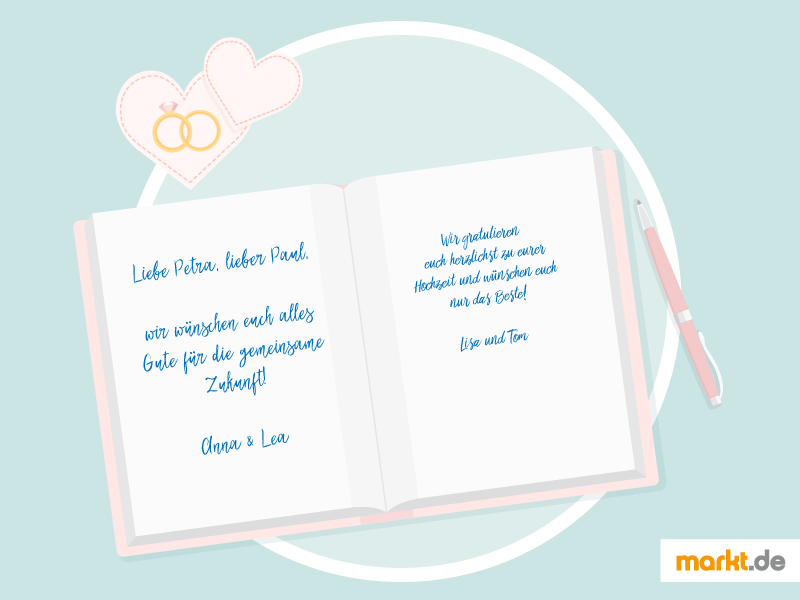 Liebe Petra, lieber Paul,
wir wünschen euch alles
Gute für die gemeinsame
Zukunft!
Anna & Lea
Wir gratulieren
euch herzlichst zu eurer
Hochzeit und wünschen euch
nur das Beste!
Lisa und Tom
markt.de